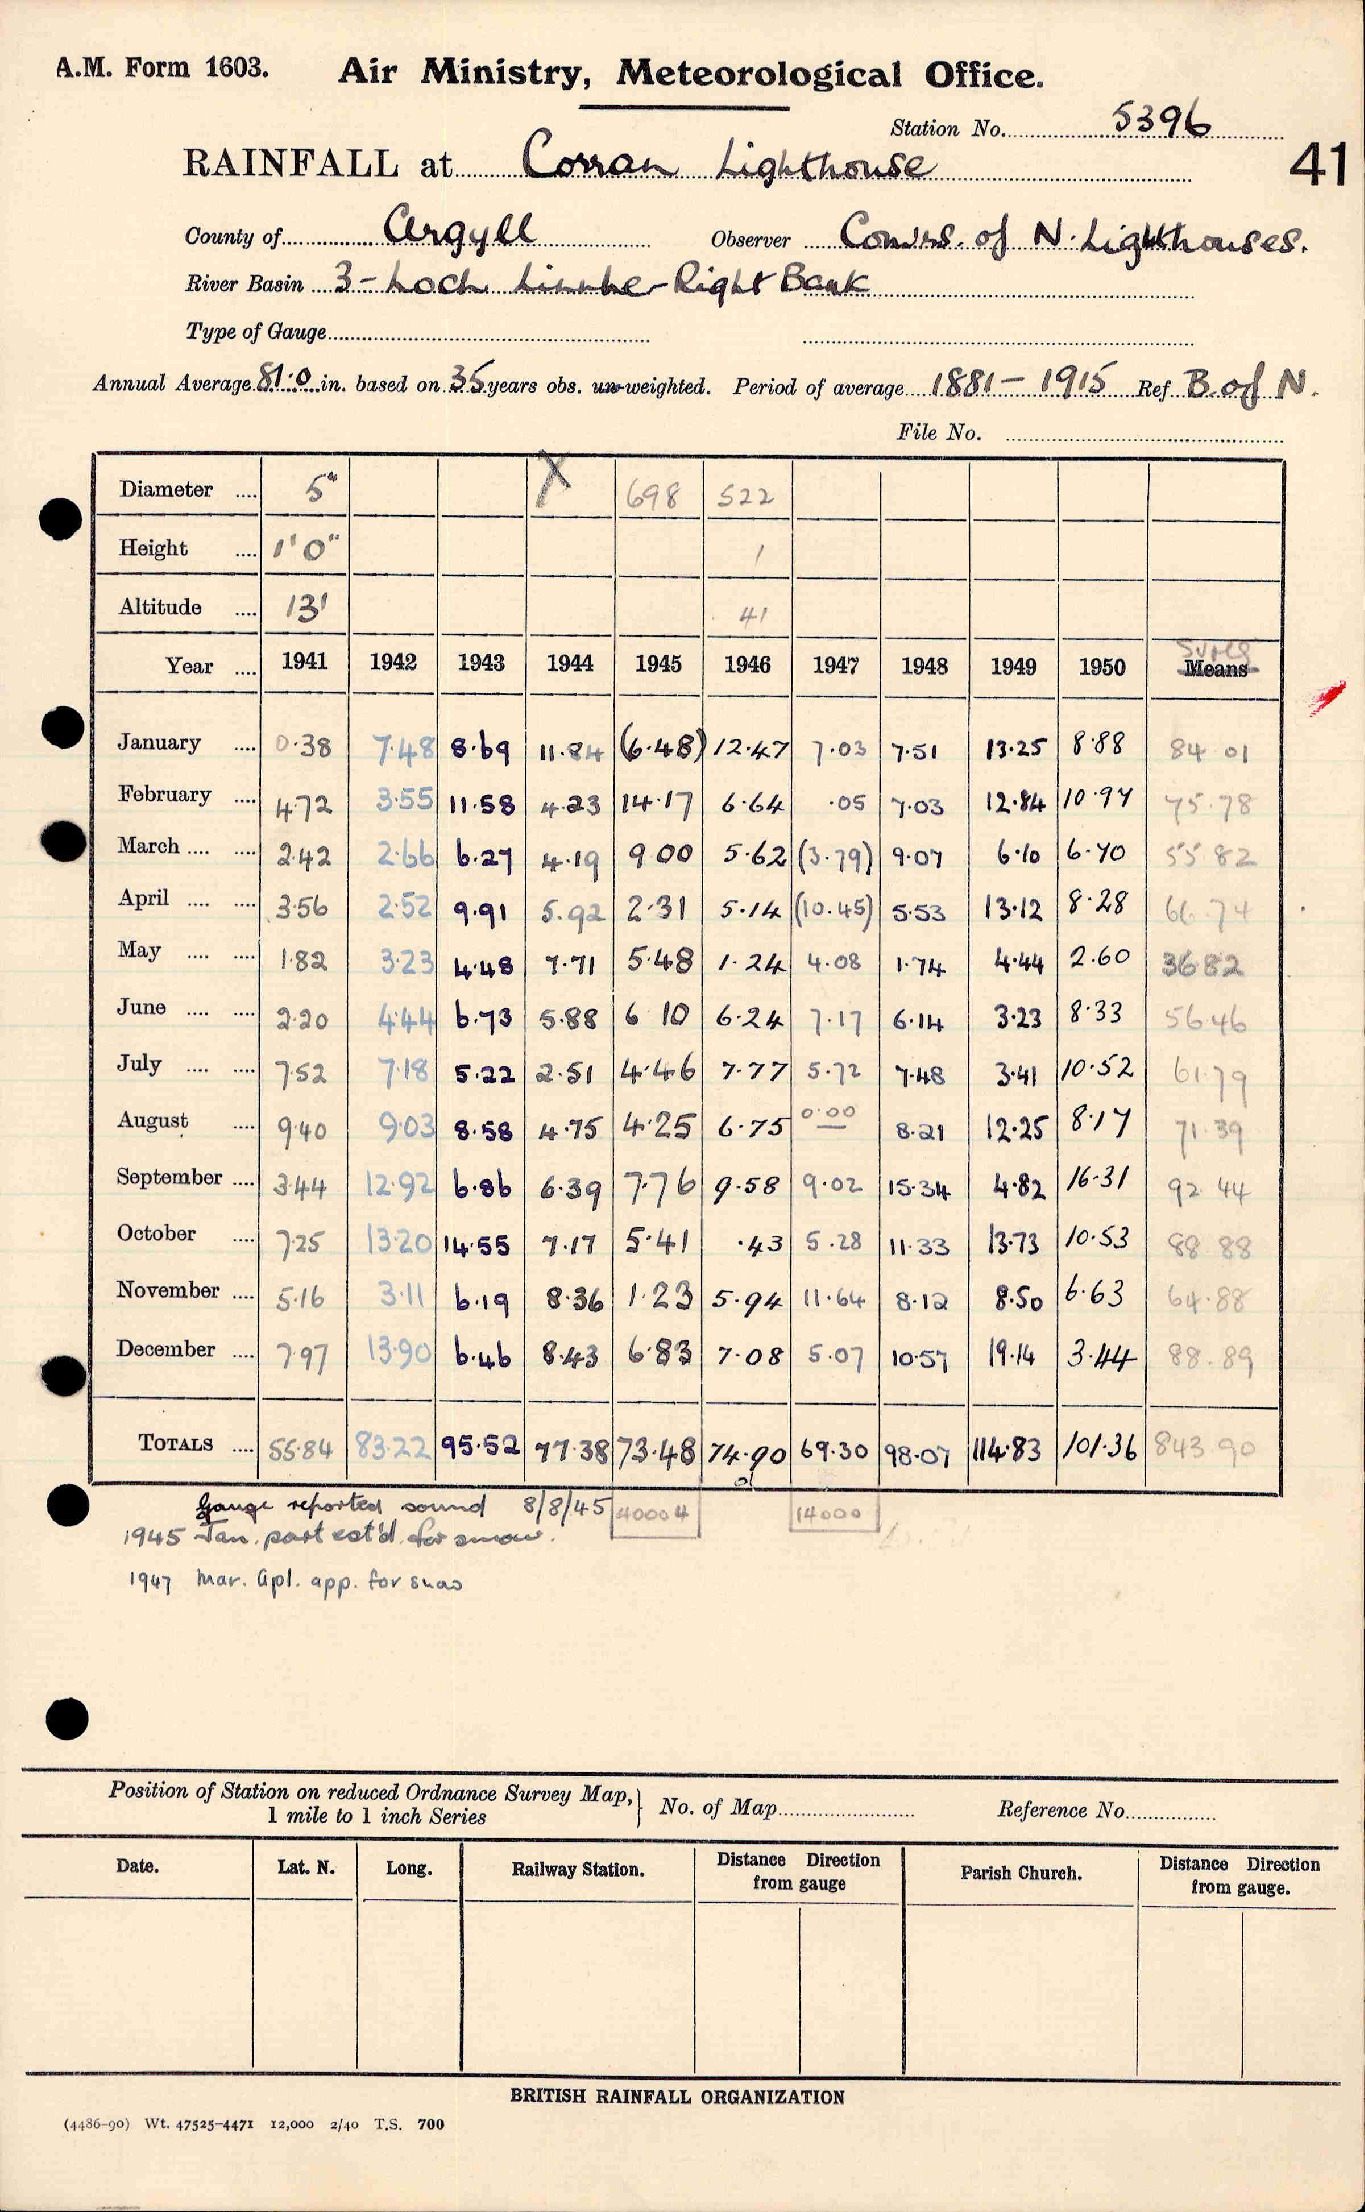 A.M. Form 1603. Air Ministry, Meteorological Office.
Station No. 5396
41
RAINFALL at Corran Lighthouse
County of Argyll Observer Comrs. of N. Lighthouses.
River Basin 3 - Loch Linnhe - Right Bank
Type of Gauge
Annual Average 81.0 in. based on 35 years obs. un-weighted. Period of average 1881 - 1915 Ref B. of N.
File No.
Diameter .... 5" X 698 522
Height .... 1' 0" 1
Altitude .... 13' 41
Year .... 1941 1942 1943 1944 1945 1946 1947 1948 1949 1950 Means
January .... 0.38 7.48 8.69 11.84 (6.48) 12.47 7.03 7.51 13.25 8.88 84 01
February .... 4.72 3.55 11.58 4.23 14.17 6.64 .05 7.03 12.84 10.97 75.78
March .... .... 2.42 2.66 6.27 4.19 9 00 5.62 (3.79) 9.07 6.10 6.70 55 82
April .... .... 3.56 2.52 9.91 5.92 2.31 5.14 (10.45) 5.53 13.12 8.28 66.74
May .... .... 1.82 3.23 4.48 7.71 5.48 1.24 4.08 1.74 4.44 2.60 36.82
June .... .... 2.20 4.44 6.73 5.88 6 10 6.24 7.17 6.14 3.23 8.33 56.46
July .... .... 7.52 7.18 5.22 2.51 4.46 7.77 5.72 7.48 3.41 10.52 61.79
August .... 9.40 9.03 8.58 4.75 4.25 6.75 0.00 8.21 12.25 8.17 71.39
September .... 3.44 12.92 6.86 6.39 7.76 9.58 9.02 15.34 4.82 16.31 92 44
October .... 7.25 13.20 14.55 7.17 5.41 .43 5.28 11.33 13.73 10.53 88 88
November .... 5.16 3.11 6.19 8.36 1.23 5.94 11.64 8.12 8.50 6.63 64.88
December .... 7.97 13.90 6.46 8.43 6.83 7.08 5.07 10.57 19.14 3.44 88.89
TOTALS .... 55.84 83.22 95.52 77.38 73.48 74.90 69.30 98.07 114.83 101.36 843.90
Gauge reported sound 8/8/45 40004 14000
1945 Jan. part est'd. for snow.
1947 Mar. Apl. app. for snow
Position of Station on reduced Ordnance Survey Map, 1 mile to 1 inch Series } No. of Map Reference No.
Date. Lat. N. Long. Railway Station. Distance Direction from gauge Parish Church. Distance Direction from gauge.
BRITISH RAINFALL ORGANIZATION
(4486-90) Wt. 47525-4471 12,000 2/40 T.S. 700